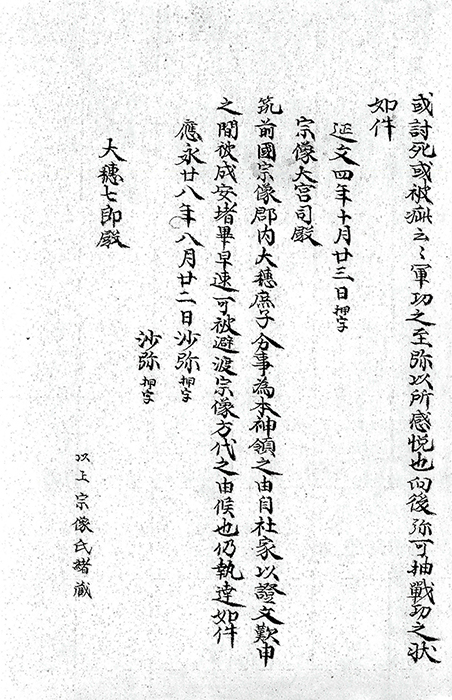 或討死或被疵云々軍功之至弥以所感悦也向後弥可抽戦功之状
如件
延文四年十月廿三日 押字
宗像大宮司殿
筑前國宗像郡内大穂庶子分事為本神領之由自社家以證文歎申
之間被成安堵畢早速可被避渡宗像方代之由候也仍執達如件
應永廿八年八月廿二日 沙弥 押字
沙弥 押字
大穂七郎殿
以上宗像氏緒蔵